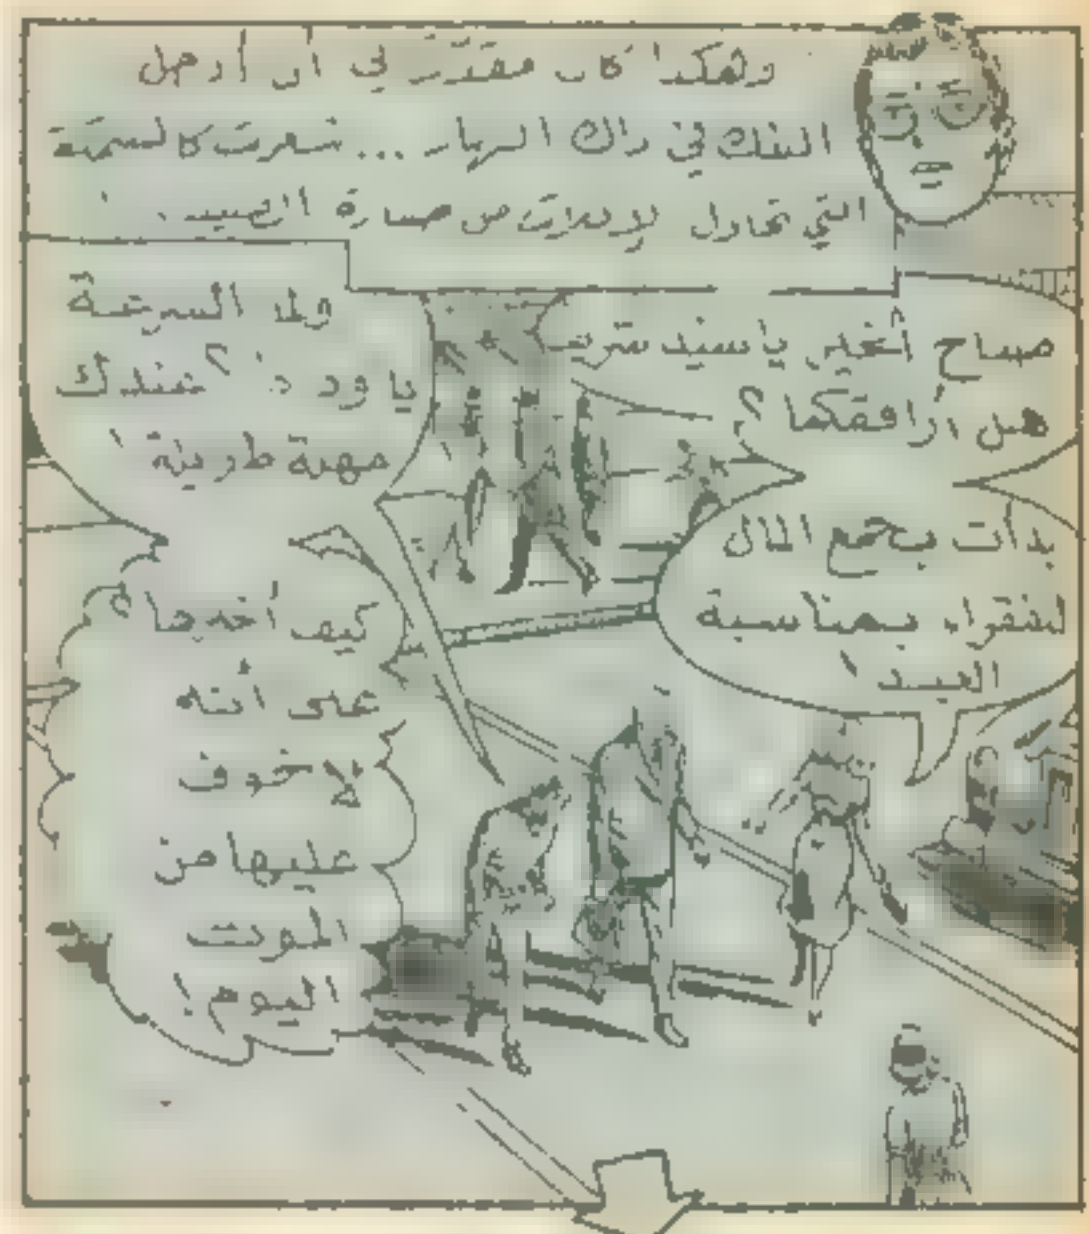 وهكذا كان مقدّر لي أن أدخل
البنك في ذاك النهار ... شعرت كالسمكة
التي تحاول الإفلات من صنارة الصيد .
صباح الخير يا سيد
هل أرافقكما ؟
ولما السرعة
يا ؟ عندك
مهمة طارئة !
بدأت بجمع المال
للفقراء بمناسبة
العيد !
كيف أخبرها ؟
على أنه
لا خوف
عليها من
الموت
اليوم !